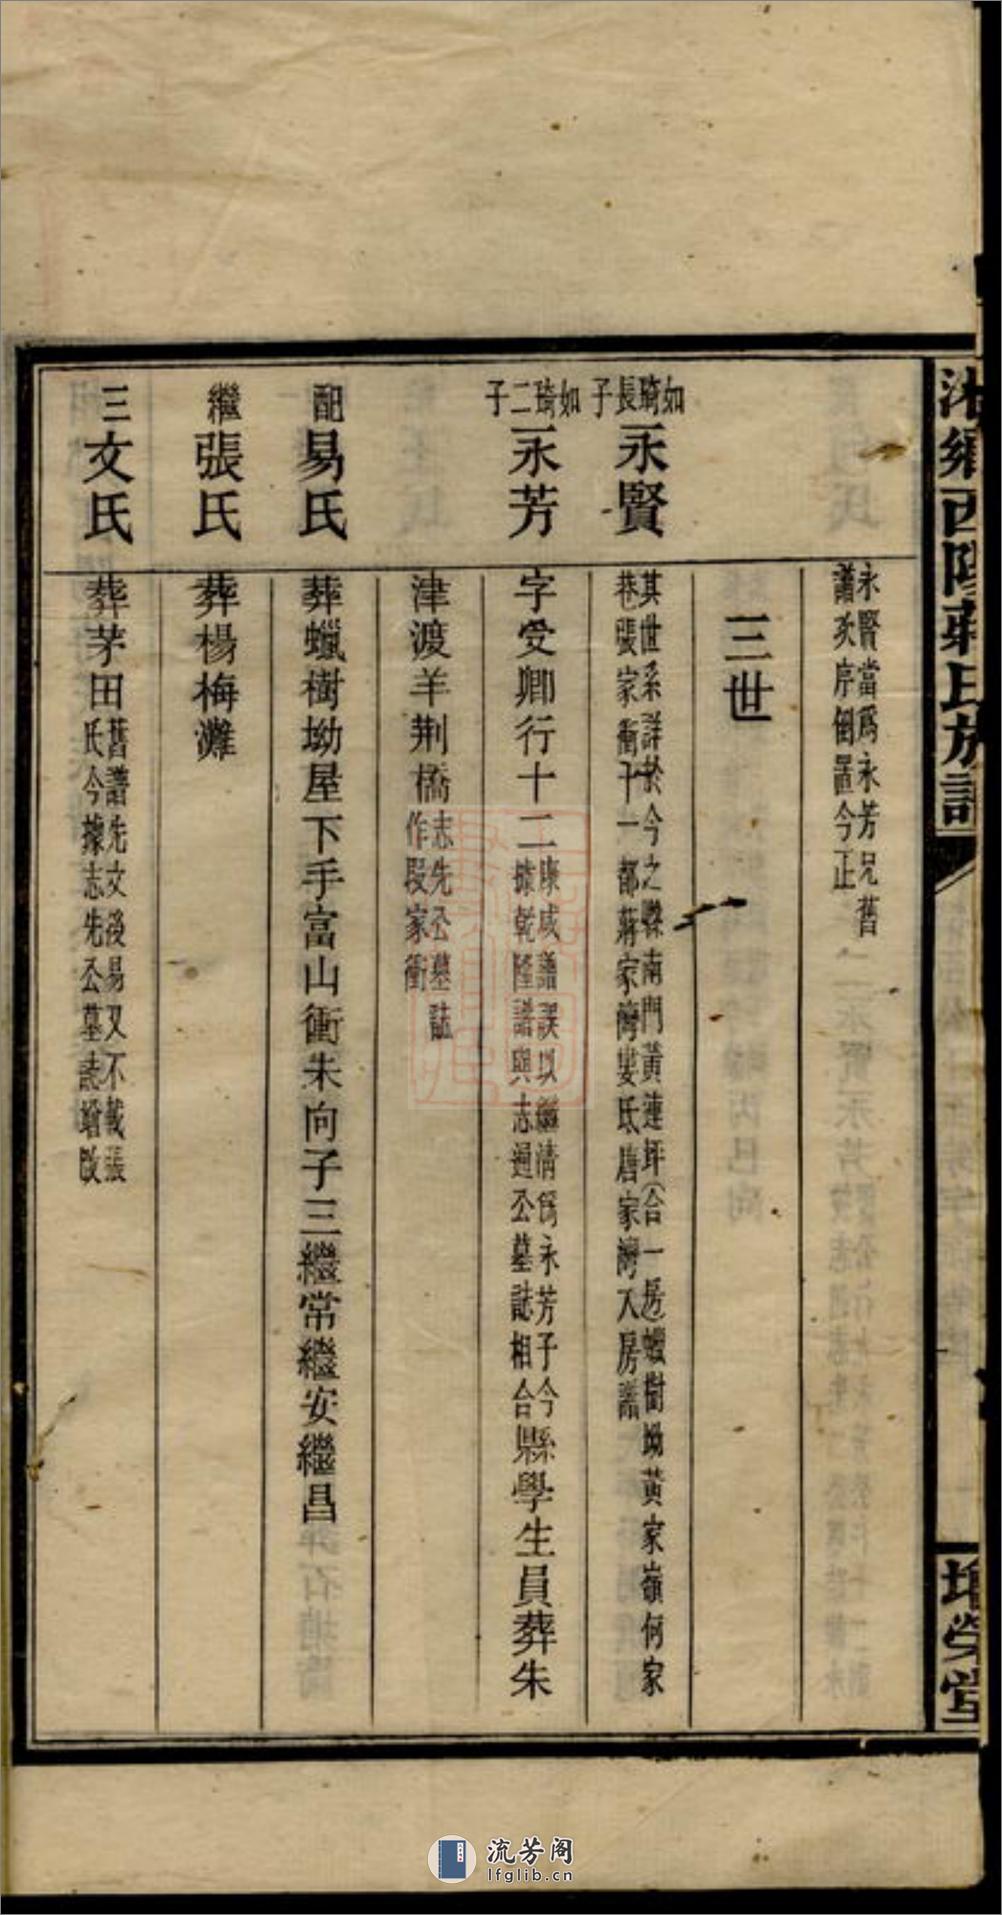 湘鄉西陽蔣氏族譜
增榮堂
永賢當爲永芳兄舊
譜次序倒置今正
三世
如琦長子
永賢
其世系詳於今之縣南門黃連坪(合一房)蠟樹坳黃家嶺何家
巷張家衝十一都蔣家灣婁底唐家灣入房譜
如琦二子
永芳
字受卿行十二
陳咸譜誤以繼清爲永芳子今
據乾隆譜與志通公墓誌相合
縣學生員葬朱
津渡羊荆橋
志先公墓誌
作段家衝
配易氏
葬蠟樹坳屋下手富山衝朱向子三繼常繼安繼昌
繼張氏
葬楊梅灘
三文氏
葬茅田
舊譜先文後易又不載張
氏今據志先公墓誌增改
流芳阁
lfglib.cn